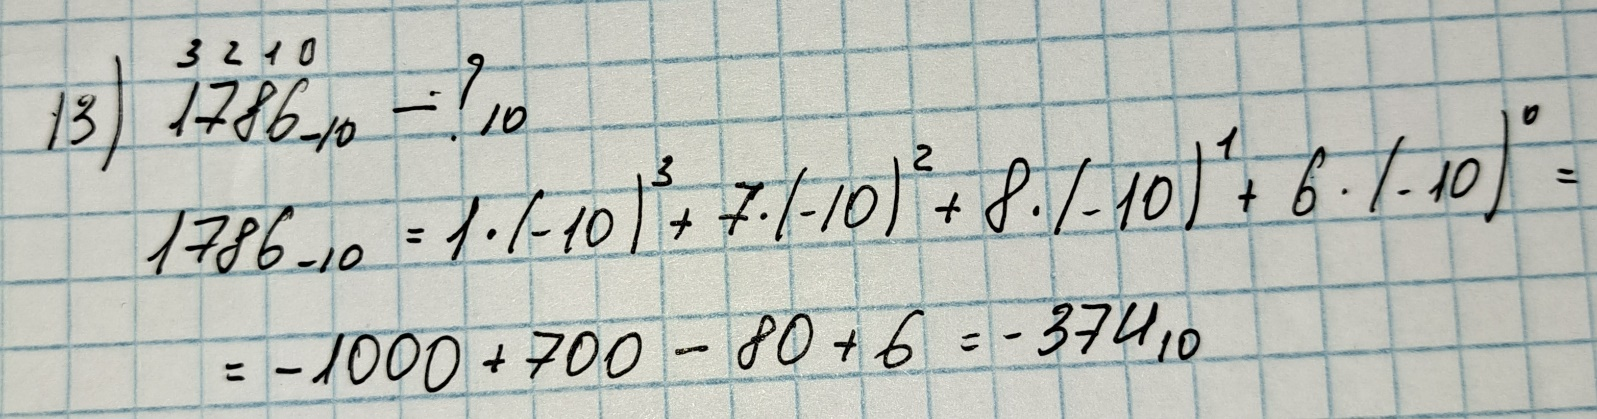 3 2 1 0
13) 1786₋₁₀ – ?₁₀
1786₋₁₀ = 1·(-10)³ + 7·(-10)² + 8·(-10)¹ + 6·(-10)⁰ =
= -1000 + 700 - 80 + 6 = -374₁₀